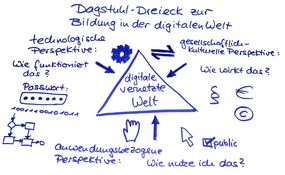 Dagstuhl-Dreieck zur
Bildung in der digitalen Welt
technologische
Perspektive:
Wie funktioniert
das?
Passwort:
100111001011
gesellschaftlich-
kulturelle Perspektive:
Wie wirkt das?
§ €
©
digitale
vernetzte
Welt
anwendungsbezogene
Perspektive:
public
Wie nutze ich das?